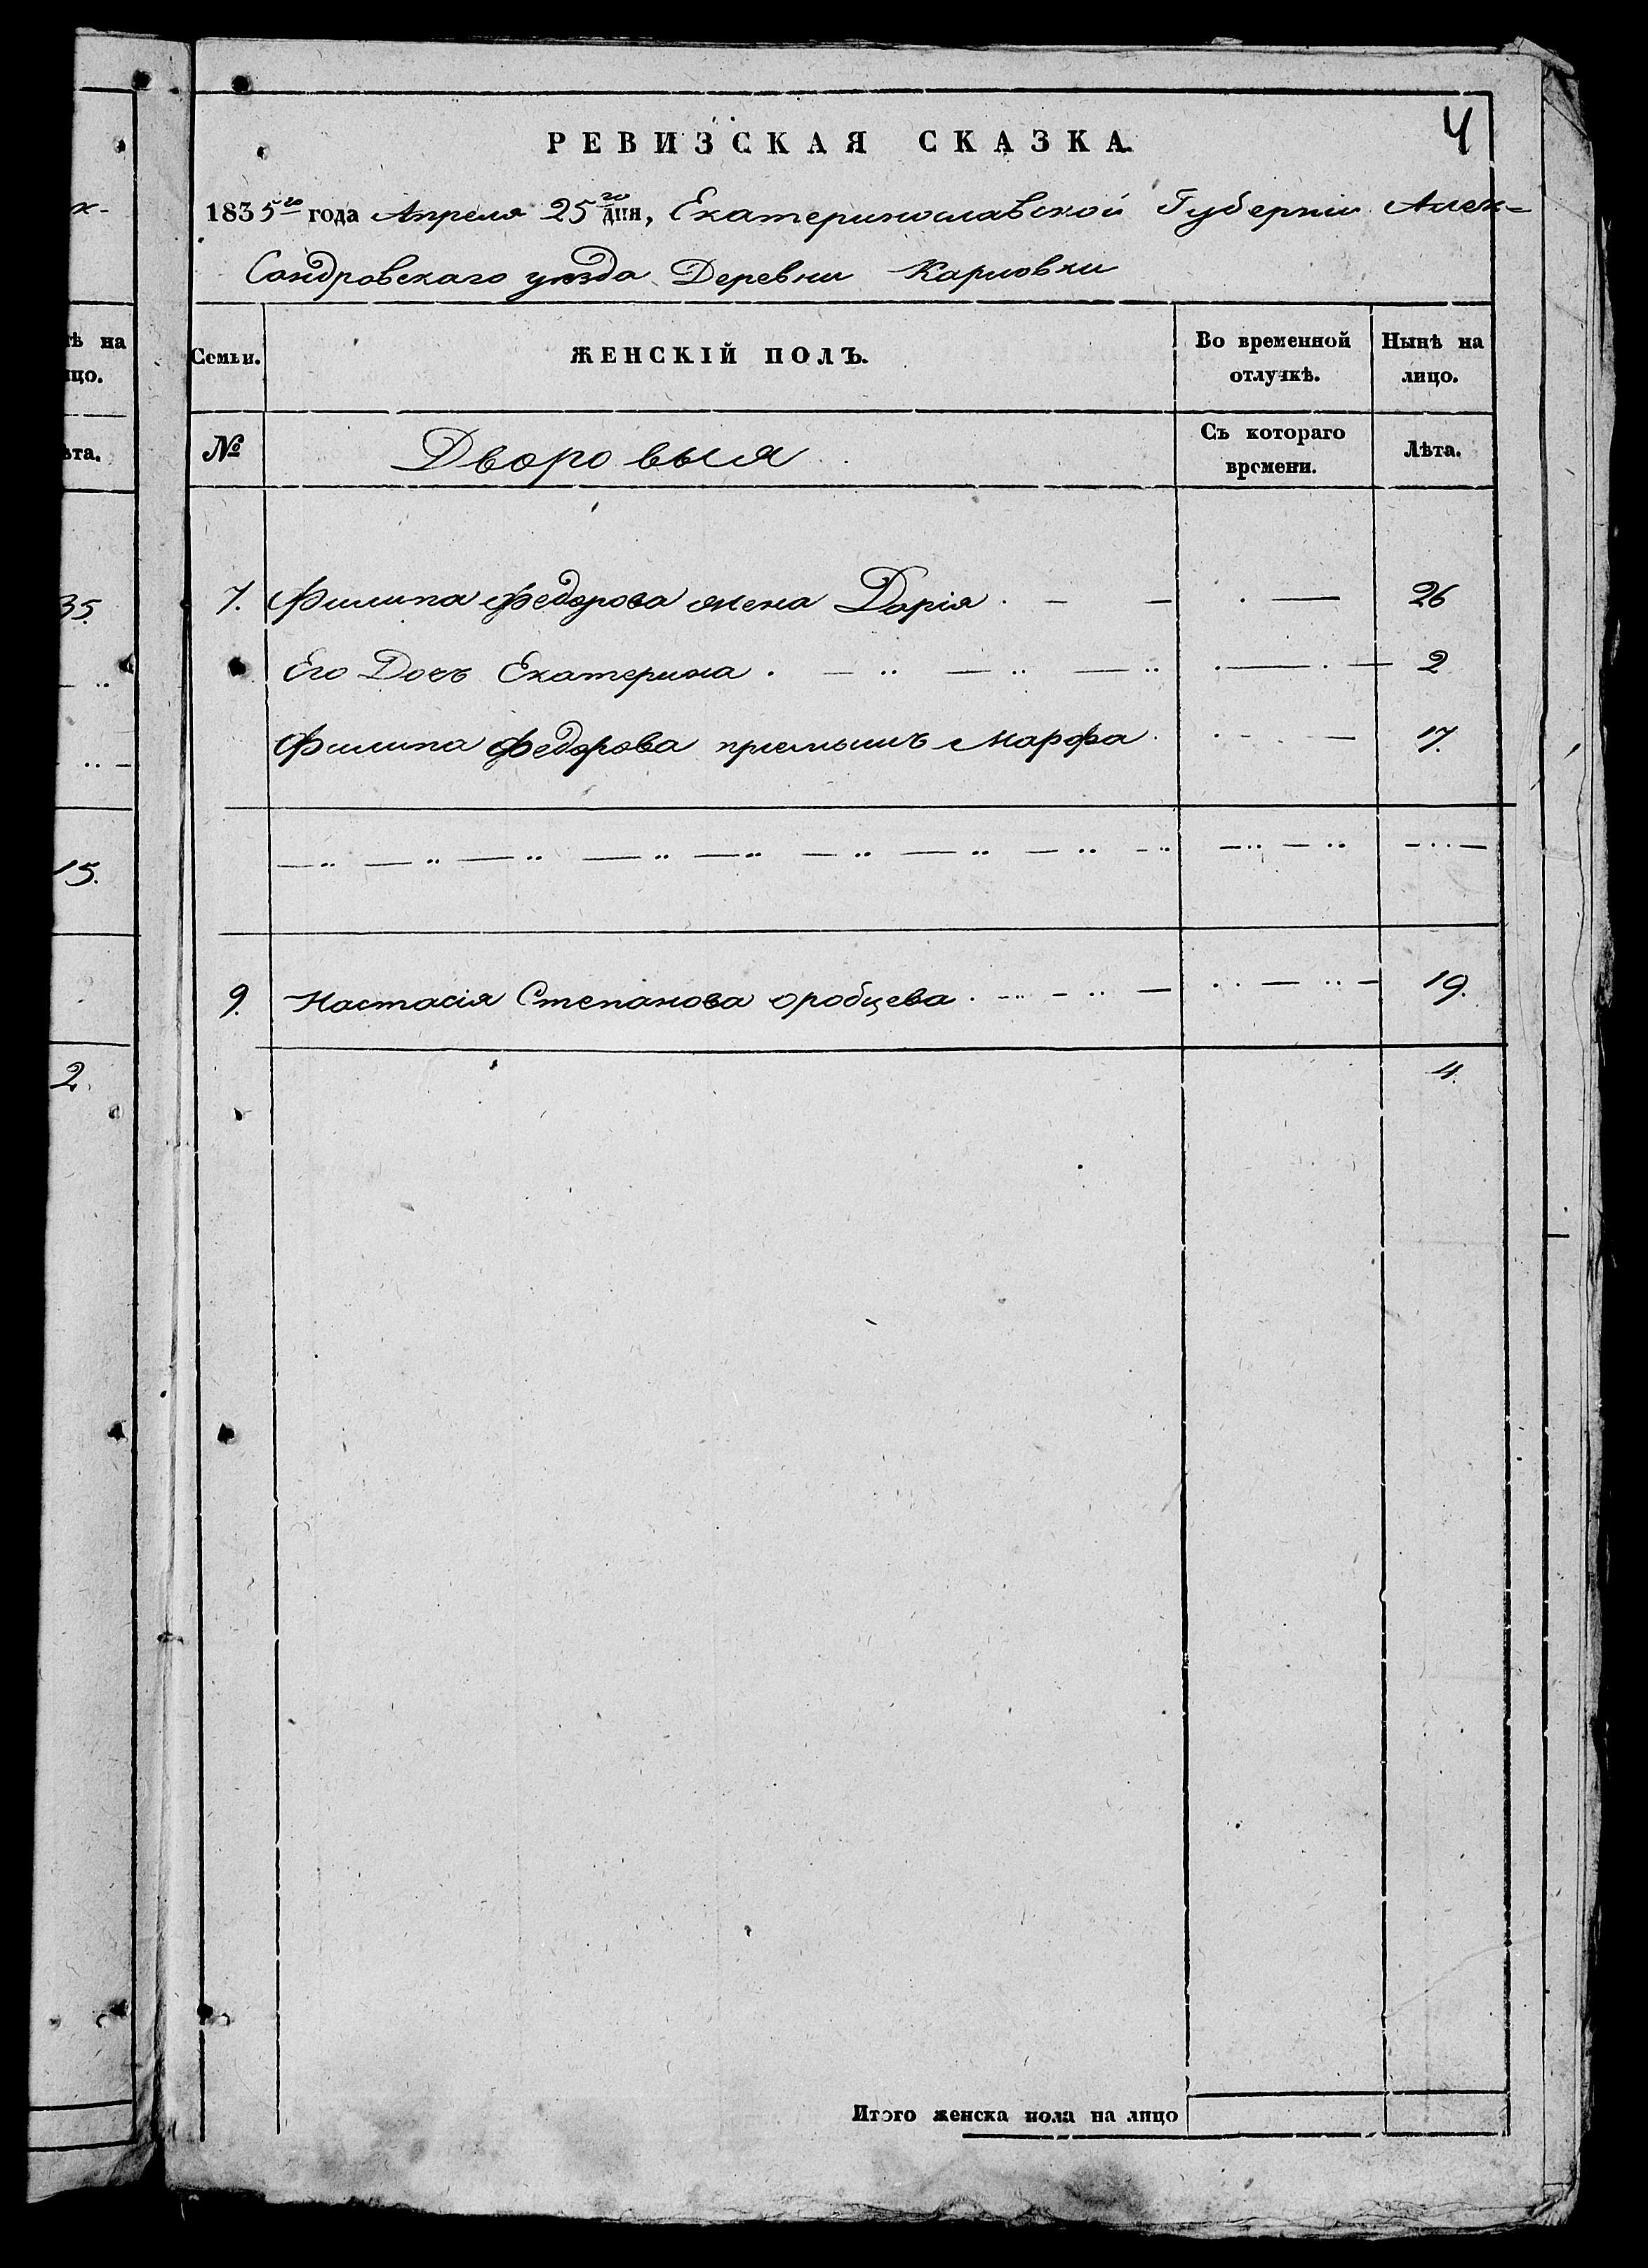 РЕВИЗСКАЯ СКАЗКА.
4
1835го года Апреля 25го дня, Екатеринославской Губернiи Алек=
Сандровскаго уезда Деревни Карловки
Семьи.
ЖЕНСКIЙ ПОЛЪ.
Во временной отлучкѣ.
Нынѣ на лицо.
№
Дворовыя
Съ котораго времени.
Лѣта.
7. Филипа Федорова жена Дарiя 26
Его Дочъ Екатерина 2
Филипа Федорова приемышъ Марфа 17.
9. Настасiя Степанова оробцева 19.
4.
Итого женска пола на лицо
х-
ѣ на
цо.
ѣта.
35.
15.
2.